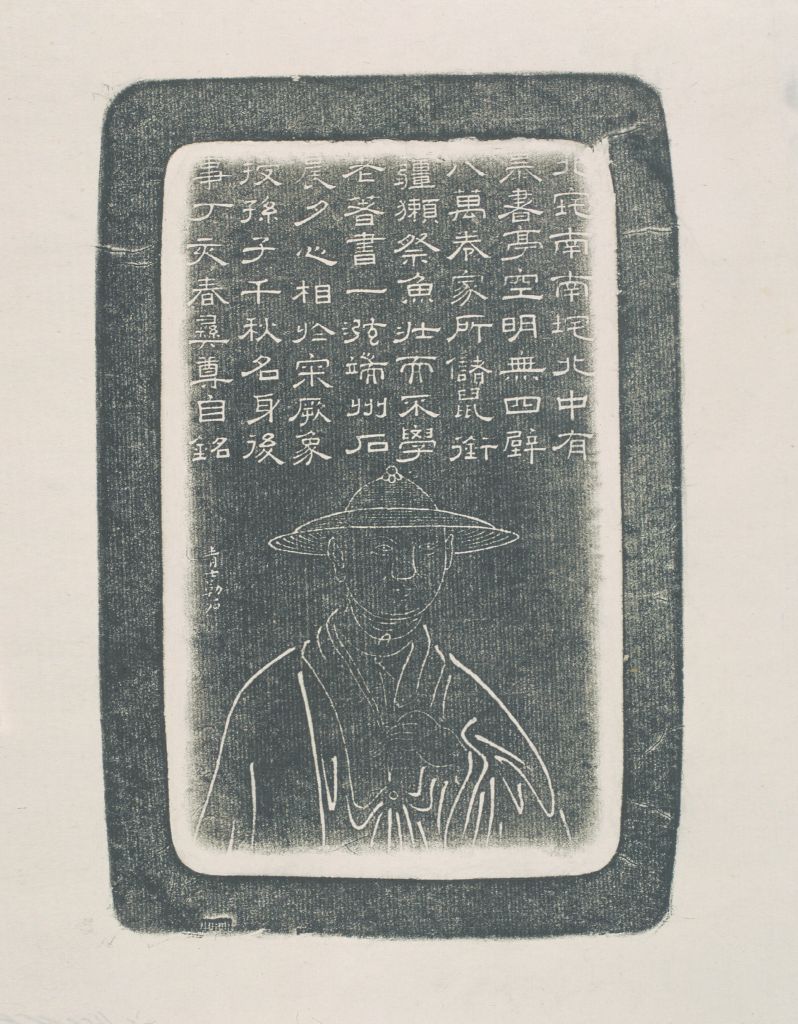 北垞南南垞北中有
暴書亭空明無四壁
八萬卷家所儲鼠銜
疆獺祭魚壯而不學
老著書一泓端州石
晨夕心相於宷厥象
授孫子千秋名身後
事丁亥春彝尊自銘
勒石